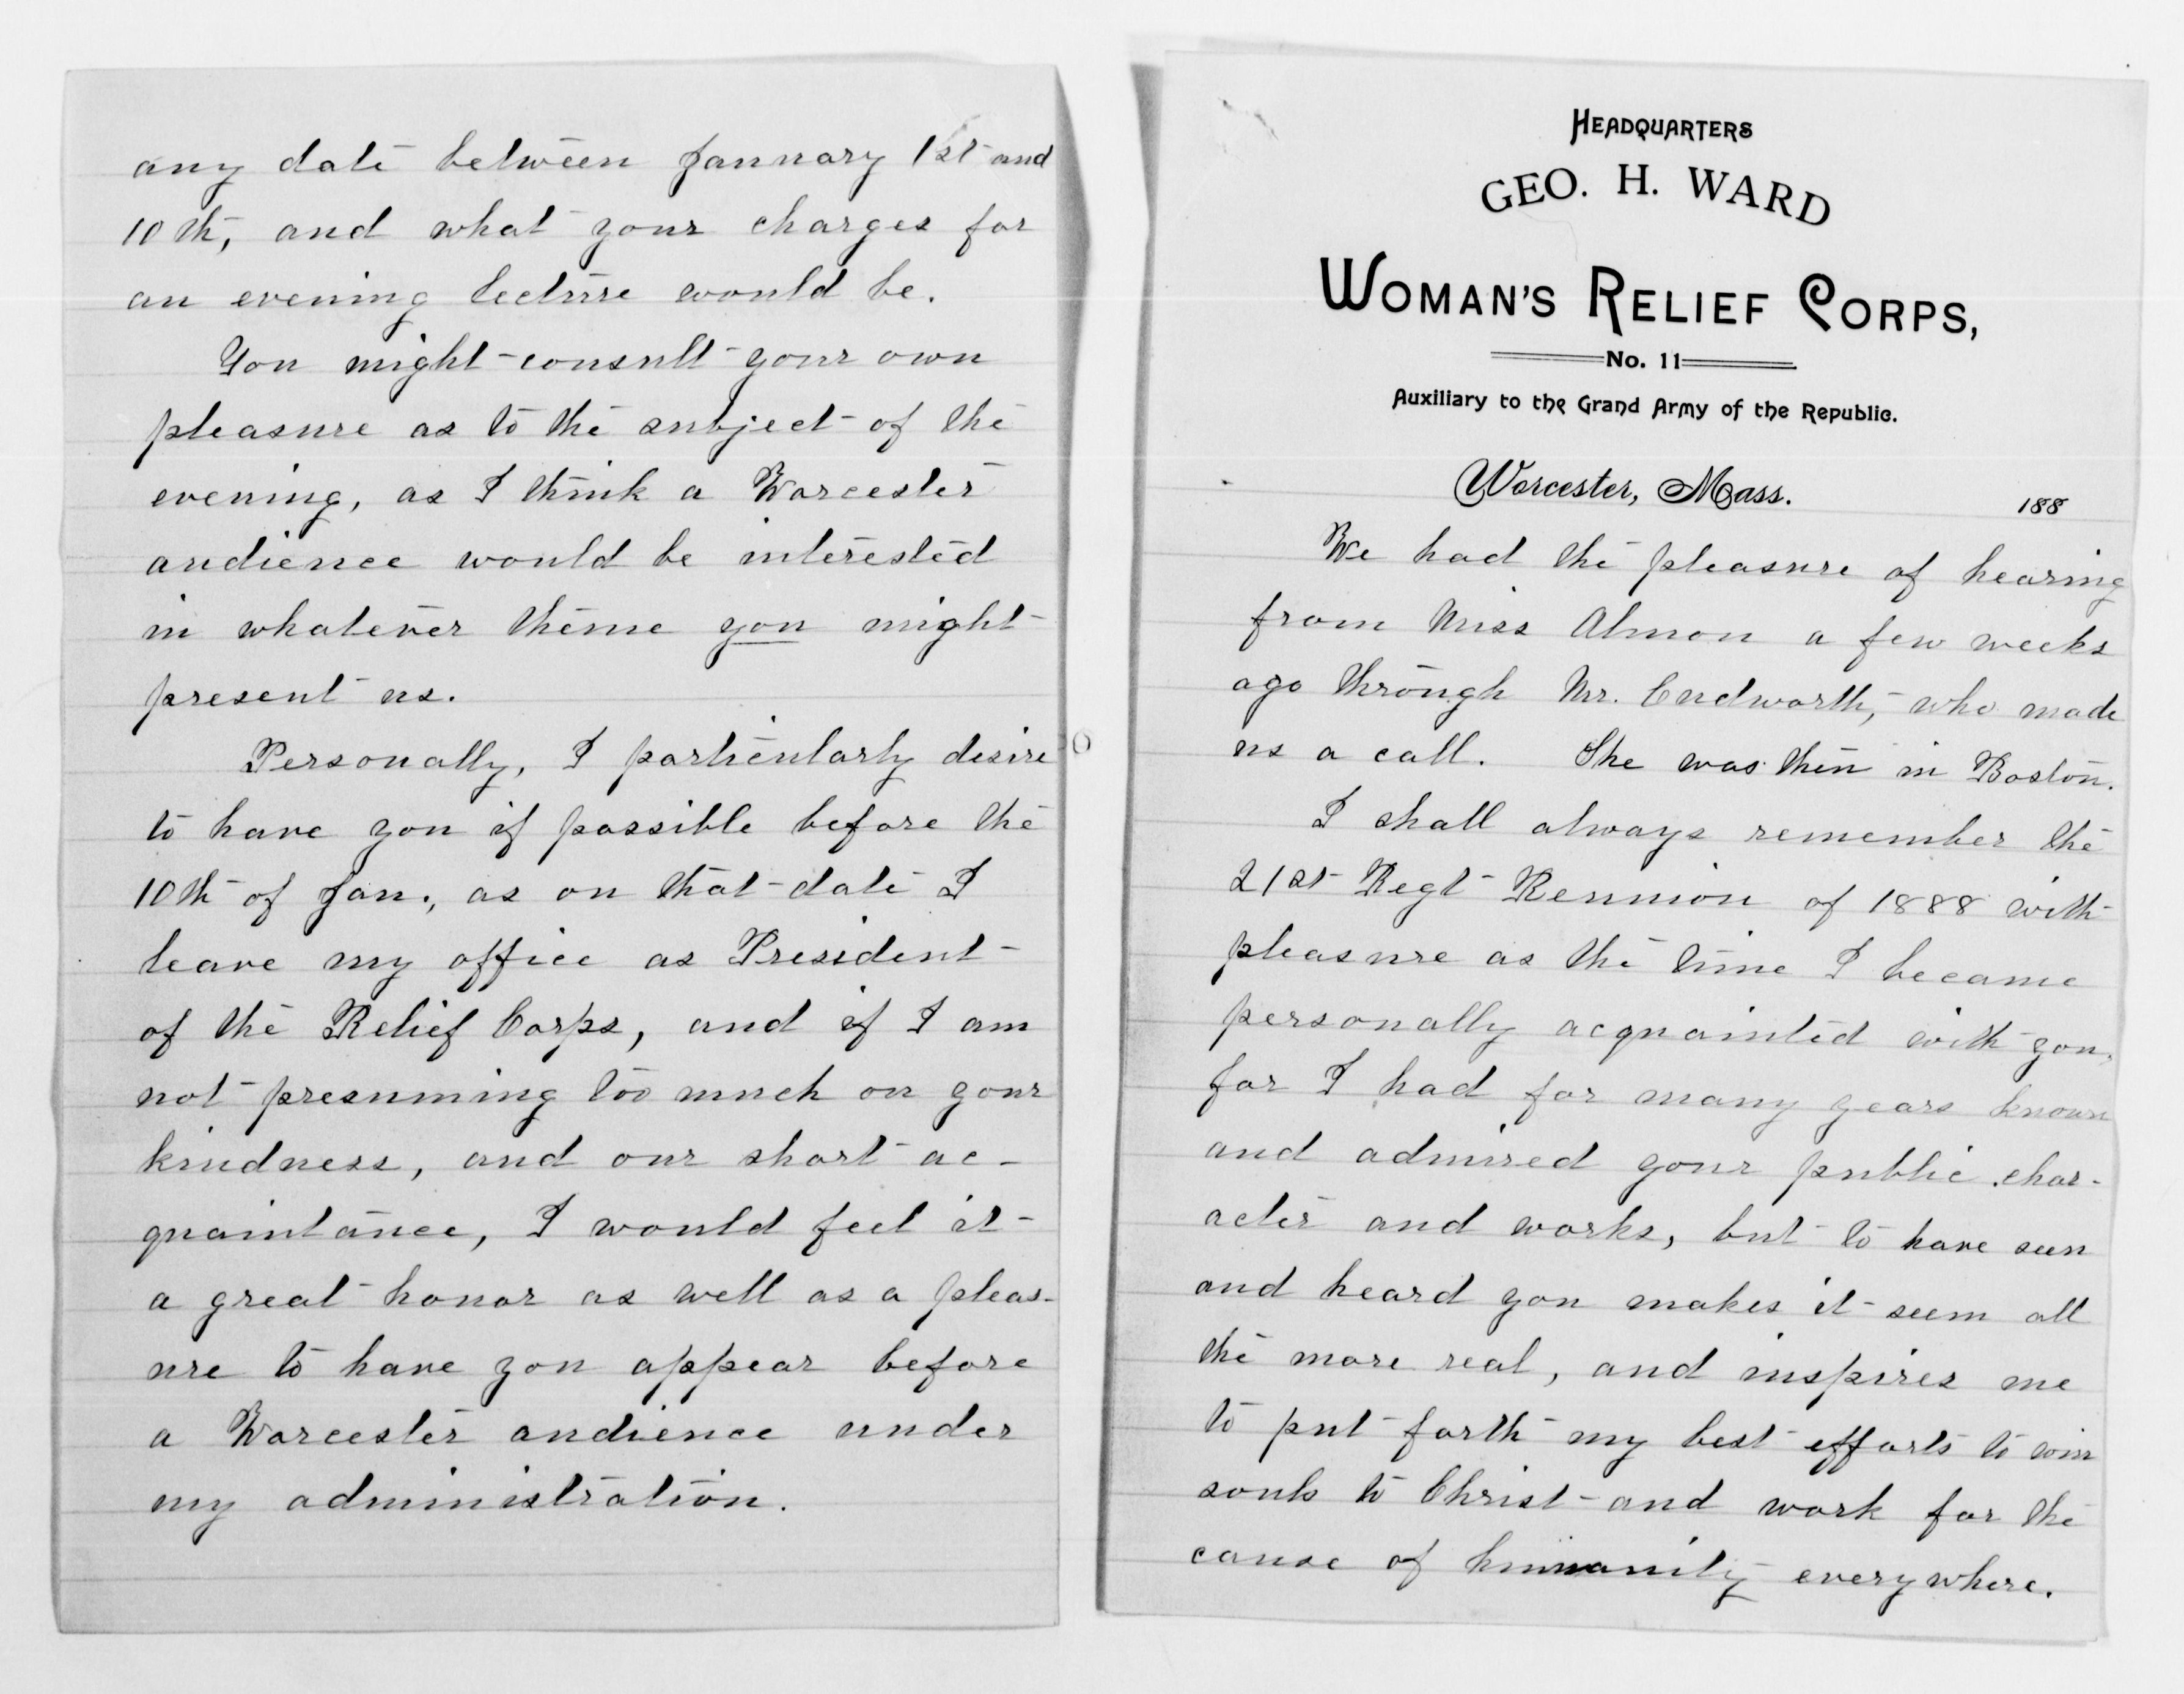 any date between January 1st and
10th, and what your charges for
an evening lecture would be.
You might consult your own
pleasure as to the subject of the
evening, as I think a Worcester
audience would be interested
in whatever theme you might
present us.
Personally, I particularly desire
to have you if possible before the
10th of Jan., as on that date I
leave my office as President
of the Relief Corps, and if I am
not presuming too much on your
kindness, and our short ac-
quaintance, I would feel it
a great honor as well as a pleas-
ure to have you appear before
a Worcester audience under
my administration.
HEADQUARTERS
GEO. H. WARD
WOMAN'S RELIEF CORPS,
No. 11
Auxiliary to the Grand Army of the Republic.
Worcester, Mass. 188
We had the pleasure of hearing
from Miss Almon a few weeks
ago through Mr. Cudworth, who made
us a call. She was then in Boston.
I shall always remember the
21st Regt Reunion of 1888 with
pleasure as the time I became
personally acquainted with you,
for I had for many years known
and admired your public char-
acter and works, but to have seen
and heard you makes it seem all
the more real, and inspires me
to put forth my best efforts to win
souls to Christ and work for the
cause of humanity everywhere.